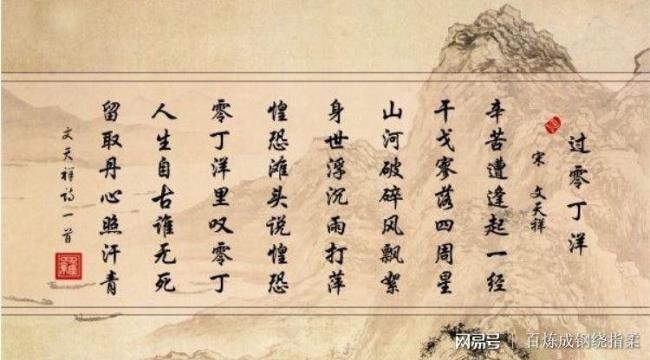 过零丁洋
宋 文天祥
辛苦遭逢起一经
干戈寥落四周星
山河破碎风飘絮
身世浮沉雨打萍
惶恐滩头说惶恐
零丁洋里叹零丁
人生自古谁无死
留取丹心照汗青
文天祥诗一首
网易号 | 百炼成钢绕指柔